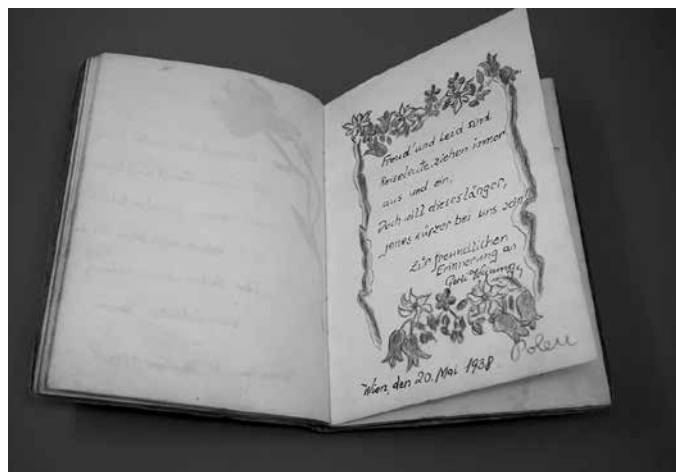 Freud' und Leid sind
Reiseleute, ziehen immer
aus und ein;
Doch will dieses länger,
jenes kürzer bei uns sein.
Zur freundlichen
Erinnerung an
Wien, den 20. Mai 1938
Polen